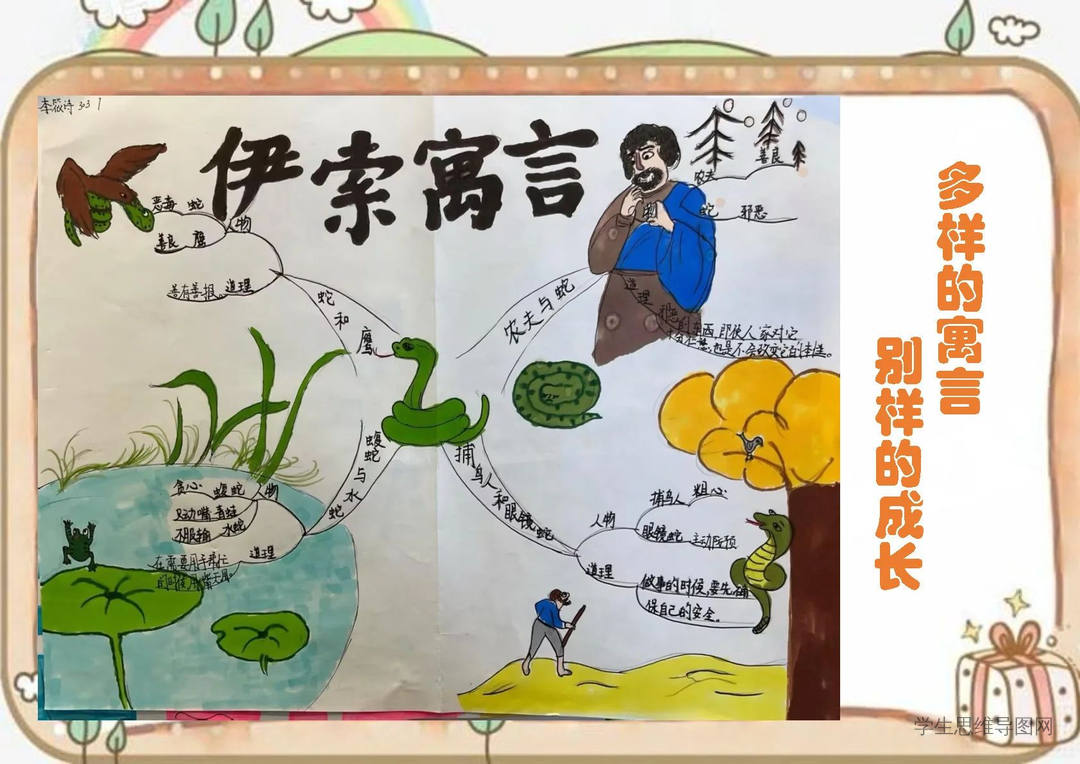 李筱诗 303 1
伊索寓言
恶毒 蛇
人物
善良 鹰
善有善报 道理
蛇和鹰
农夫与蛇
农夫 善良
物 蛇 邪恶
道理
东西,即使人家对它
也是不会改变它的本性。
蝮蛇与水蛇
贪心 蝮蛇 人物
只动嘴 青蛙
不服输 水蛇
道理
在需要用手帮忙
的时候
捕鸟人和眼镜蛇
人物
捕鸟人 粗心
眼镜蛇 主动
道理
做事的时候,要先确
保自己的安全。
多样的寓言
别样的成长
学生思维导图网